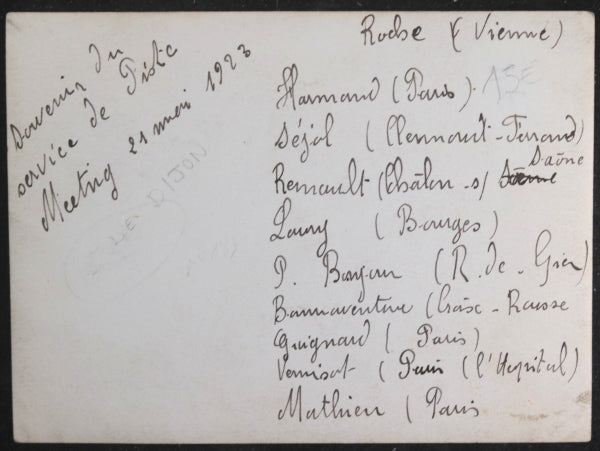 Souvenir du
service de Piste
Meeting 21 mai 1923
DIJON
Roche (Vienne)
Harmand (Paris)
15E
Séjol (Clermont-Ferrand)
Renault (Châlon-s/ Saône
Loury (Bourges)
P. Bonjour (R. de. Gier)
Bonnaventure (Croix-Rousse
Guignard (Paris)
Vernisat ( Paris (l'Hopital)
Mathieu (Paris